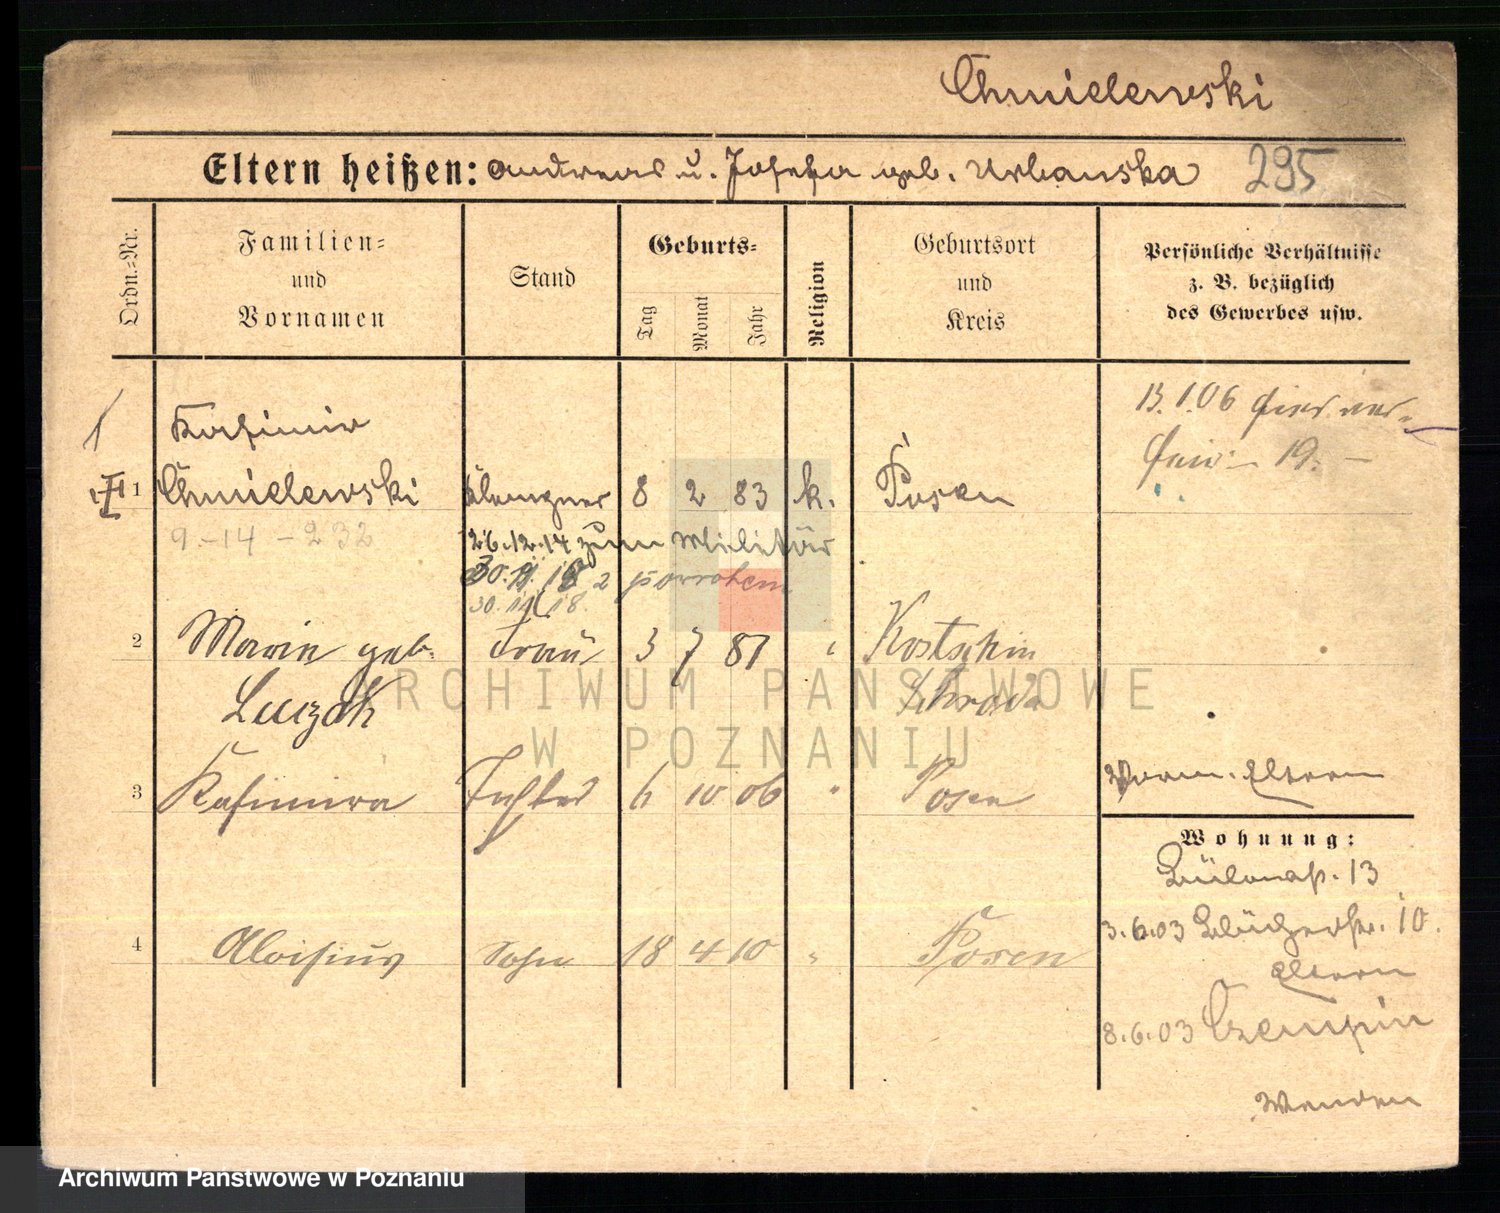 Chmielewski
Eltern heißen: Andreas u. Josefa geb. Urbanska 295
Ordn.-Nr.
Familien-
und
Vornamen
Stand
Geburts-
Tag
Monat
Jahr
Religion
Geburtsort
und
Kreis
Persönliche Verhältnisse
z. B. bezüglich
des Gewerbes usw.
13.1.06
19.
Kasimir
1 Chmielewski Klempner 8 2 83 k. Posen
9.-14-232
26.12.14 zum Militär
30.11.18
30.11.18.
2 Marie geb. Frau 3 7 81 " Kostschin
Luczak Schroda
3 Kasimira Tochter 6 10 06 " Posen
4 Aloisius Sohn 18 4 10 " Posen
Eltern
Wohnung:
13
3.6.03 Blücherstr. 10.
Eltern
8.6.03 Czempin
Wenden
ARCHIWUM PAŃSTWOWE
W POZNANIU
Archiwum Państwowe w Poznaniu